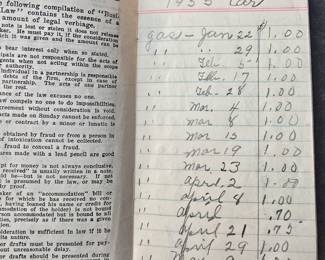 e following compilation of "Busi-
Law" contains the essence of a
amount of legal verbiage.
note is lost or stolen it does not release
ker. He must pay it, if the consideration
which it is given and the amount can be
n bear interest only when so stated.
ipals are responsible for the acts of
gents when also acting within the scope
authority.
individual in a partnership is responsible
e debts of the firm, except in case of
ecial partnerships.
ance of the law excuses no one.
law compels no one to do impossibilities.
reement without consideration is void.
acts made on Sunday cannot be enforced.
ote or contract by a minor or lunatic is
obtained by fraud or from a person in
of intoxication cannot be collected.
fraud to conceal a fraud.
ures made with a lead pencil are good
ceipt for money is not always conclusive.
received" is usually written in a note,
ld be—but is not necessary. If not
d is presumed by the law, or may be
by proof.
aker of an "accommodation" bill or
e for which he has received no con-
having loaned his name or credit for
odation of the holder) is not bound
rson accommodated but is bound to all
ies, precisely as if there was a give
on.
deration is sufficient in law if it be
its nature.
or drafts must be presented for pay-
out unreasonable delay.
or drafts should be presented during
1935 Car
gas - Jan 22 $ 1.00
" " 29 1.00
" Feb. 5 1.00
" Feb. 17 1.00
" Feb - 28 1.00
" Mar. 4 1.00
" mar 8 1.00
" Mar 13 1.00
" mar 19 1.00
" Mar. 23 1.00
" April 2 1.00
" April 8 1.00
" April .70
" April 21 .75
" April 29 1.00